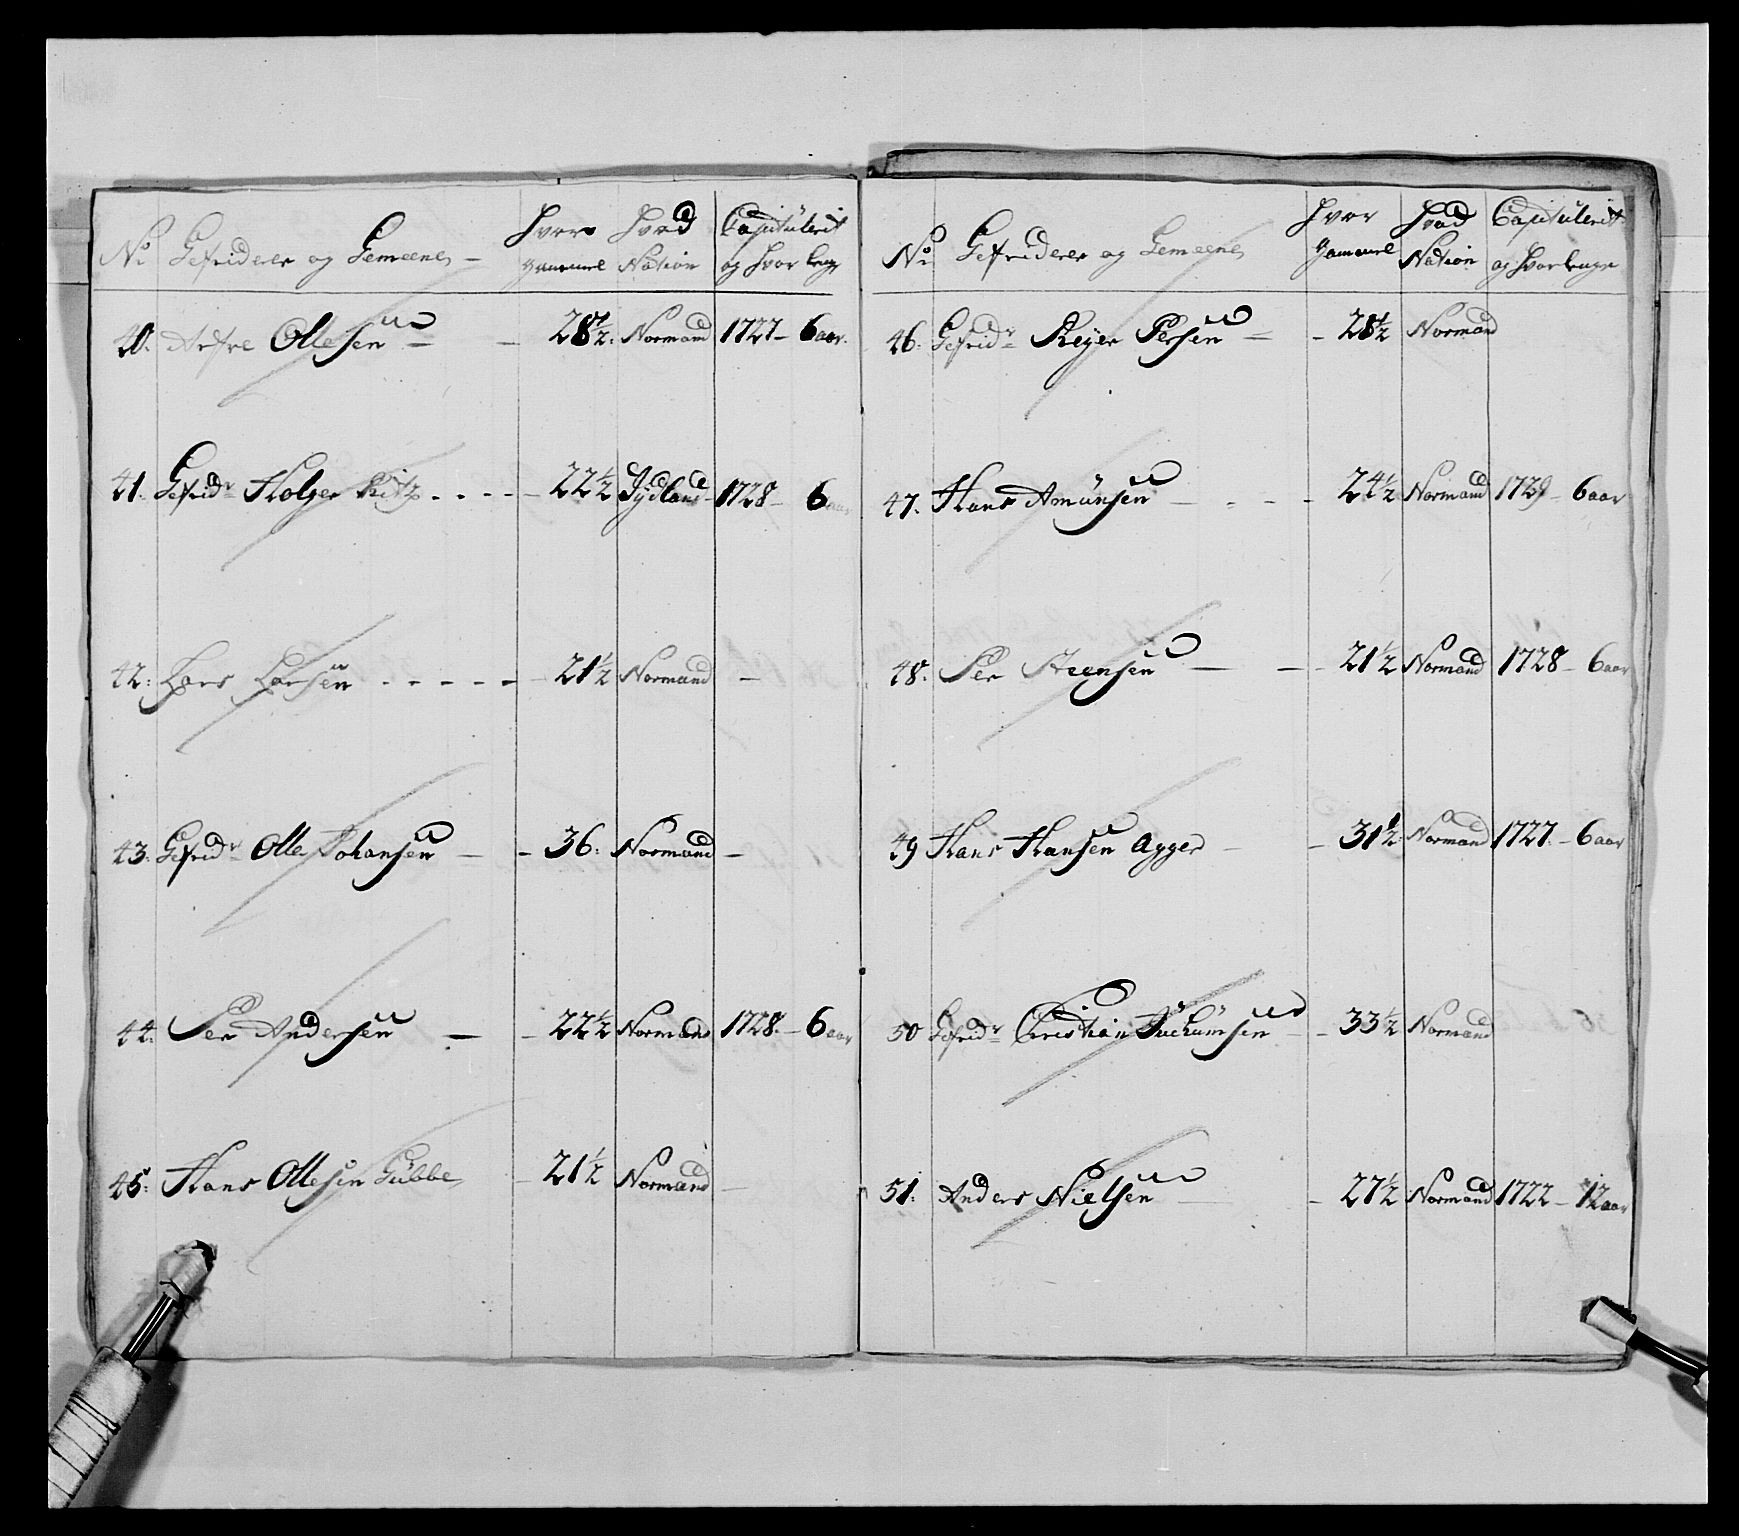 No Gefriderer og Gemeene Hvor gammel Hvad Nation Capituleret og hvor lenge
40. Ollesen 28½. Normand 1727 – 6 aar.
41. Gefridr Holger Ritz 22½ Jydland 1728 – 6 aar
42: Lars Larsen 21½ Normand –
43: Gefridr Olle Johansen – 36: Normand –
44: Per Andersen – 22½ Normand 1728. – 6 aar
45: Hans Ollesen Gubbe 21½ Normand –
No Gefriderer og Gemeene Hvor gammel Hvad Nation Capituleret og hvor lenge
46. Gefridr Reyer Persen – 28½ Normand
47. Hans Amünsen – 24½ Normand 1729 – 6 aar
48. Per Steensen – 21½ Normand 1728 – 6 aar
49 Hans Hansen Agger – 31½. Normand 1727. – 6 aar
50 Gefridr Christian Juchumsen – 33½ Normand
51. Anders Nielsen – 27½ Normand 1722 – 12 aar